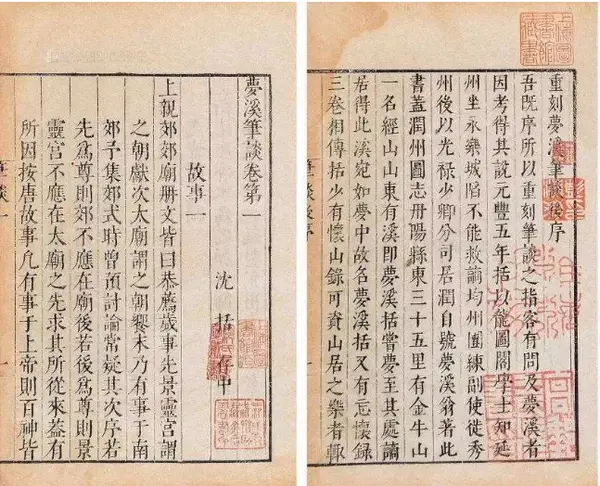 重刻夢溪筆談後序
吾既序所以重刻筆談之指客有問及夢溪者
因考得其説元豐五年括以龍圖閣學士知延
州坐永樂城陷不能救謫均州團練副使徙秀
州後以光禄少卿分司居潤自號夢溪翁著此
書蓋潤州圖志丹陽縣東三十五里有金牛山
一名經山山東有溪即夢溪括嘗夢至其處謫
居得此溪宛如夢中故名夢溪括又有忘懷録
三卷相傳括少有懷山錄可資山居之樂者輙
上海圖書館藏書
夢溪筆談卷第一
沈括存中
故事一
上親郊郊廟册文皆曰恭薦歲事先景靈宮謂
之朝獻次太廟謂之朝饗末乃有事于南
郊予集郊式時曾預討論常疑其次序若
先爲尊則郊不應在廟後若後爲尊則景
靈宮不應在太廟之先求其所從來蓋有
所因按唐故事凡有事于上帝則百神皆